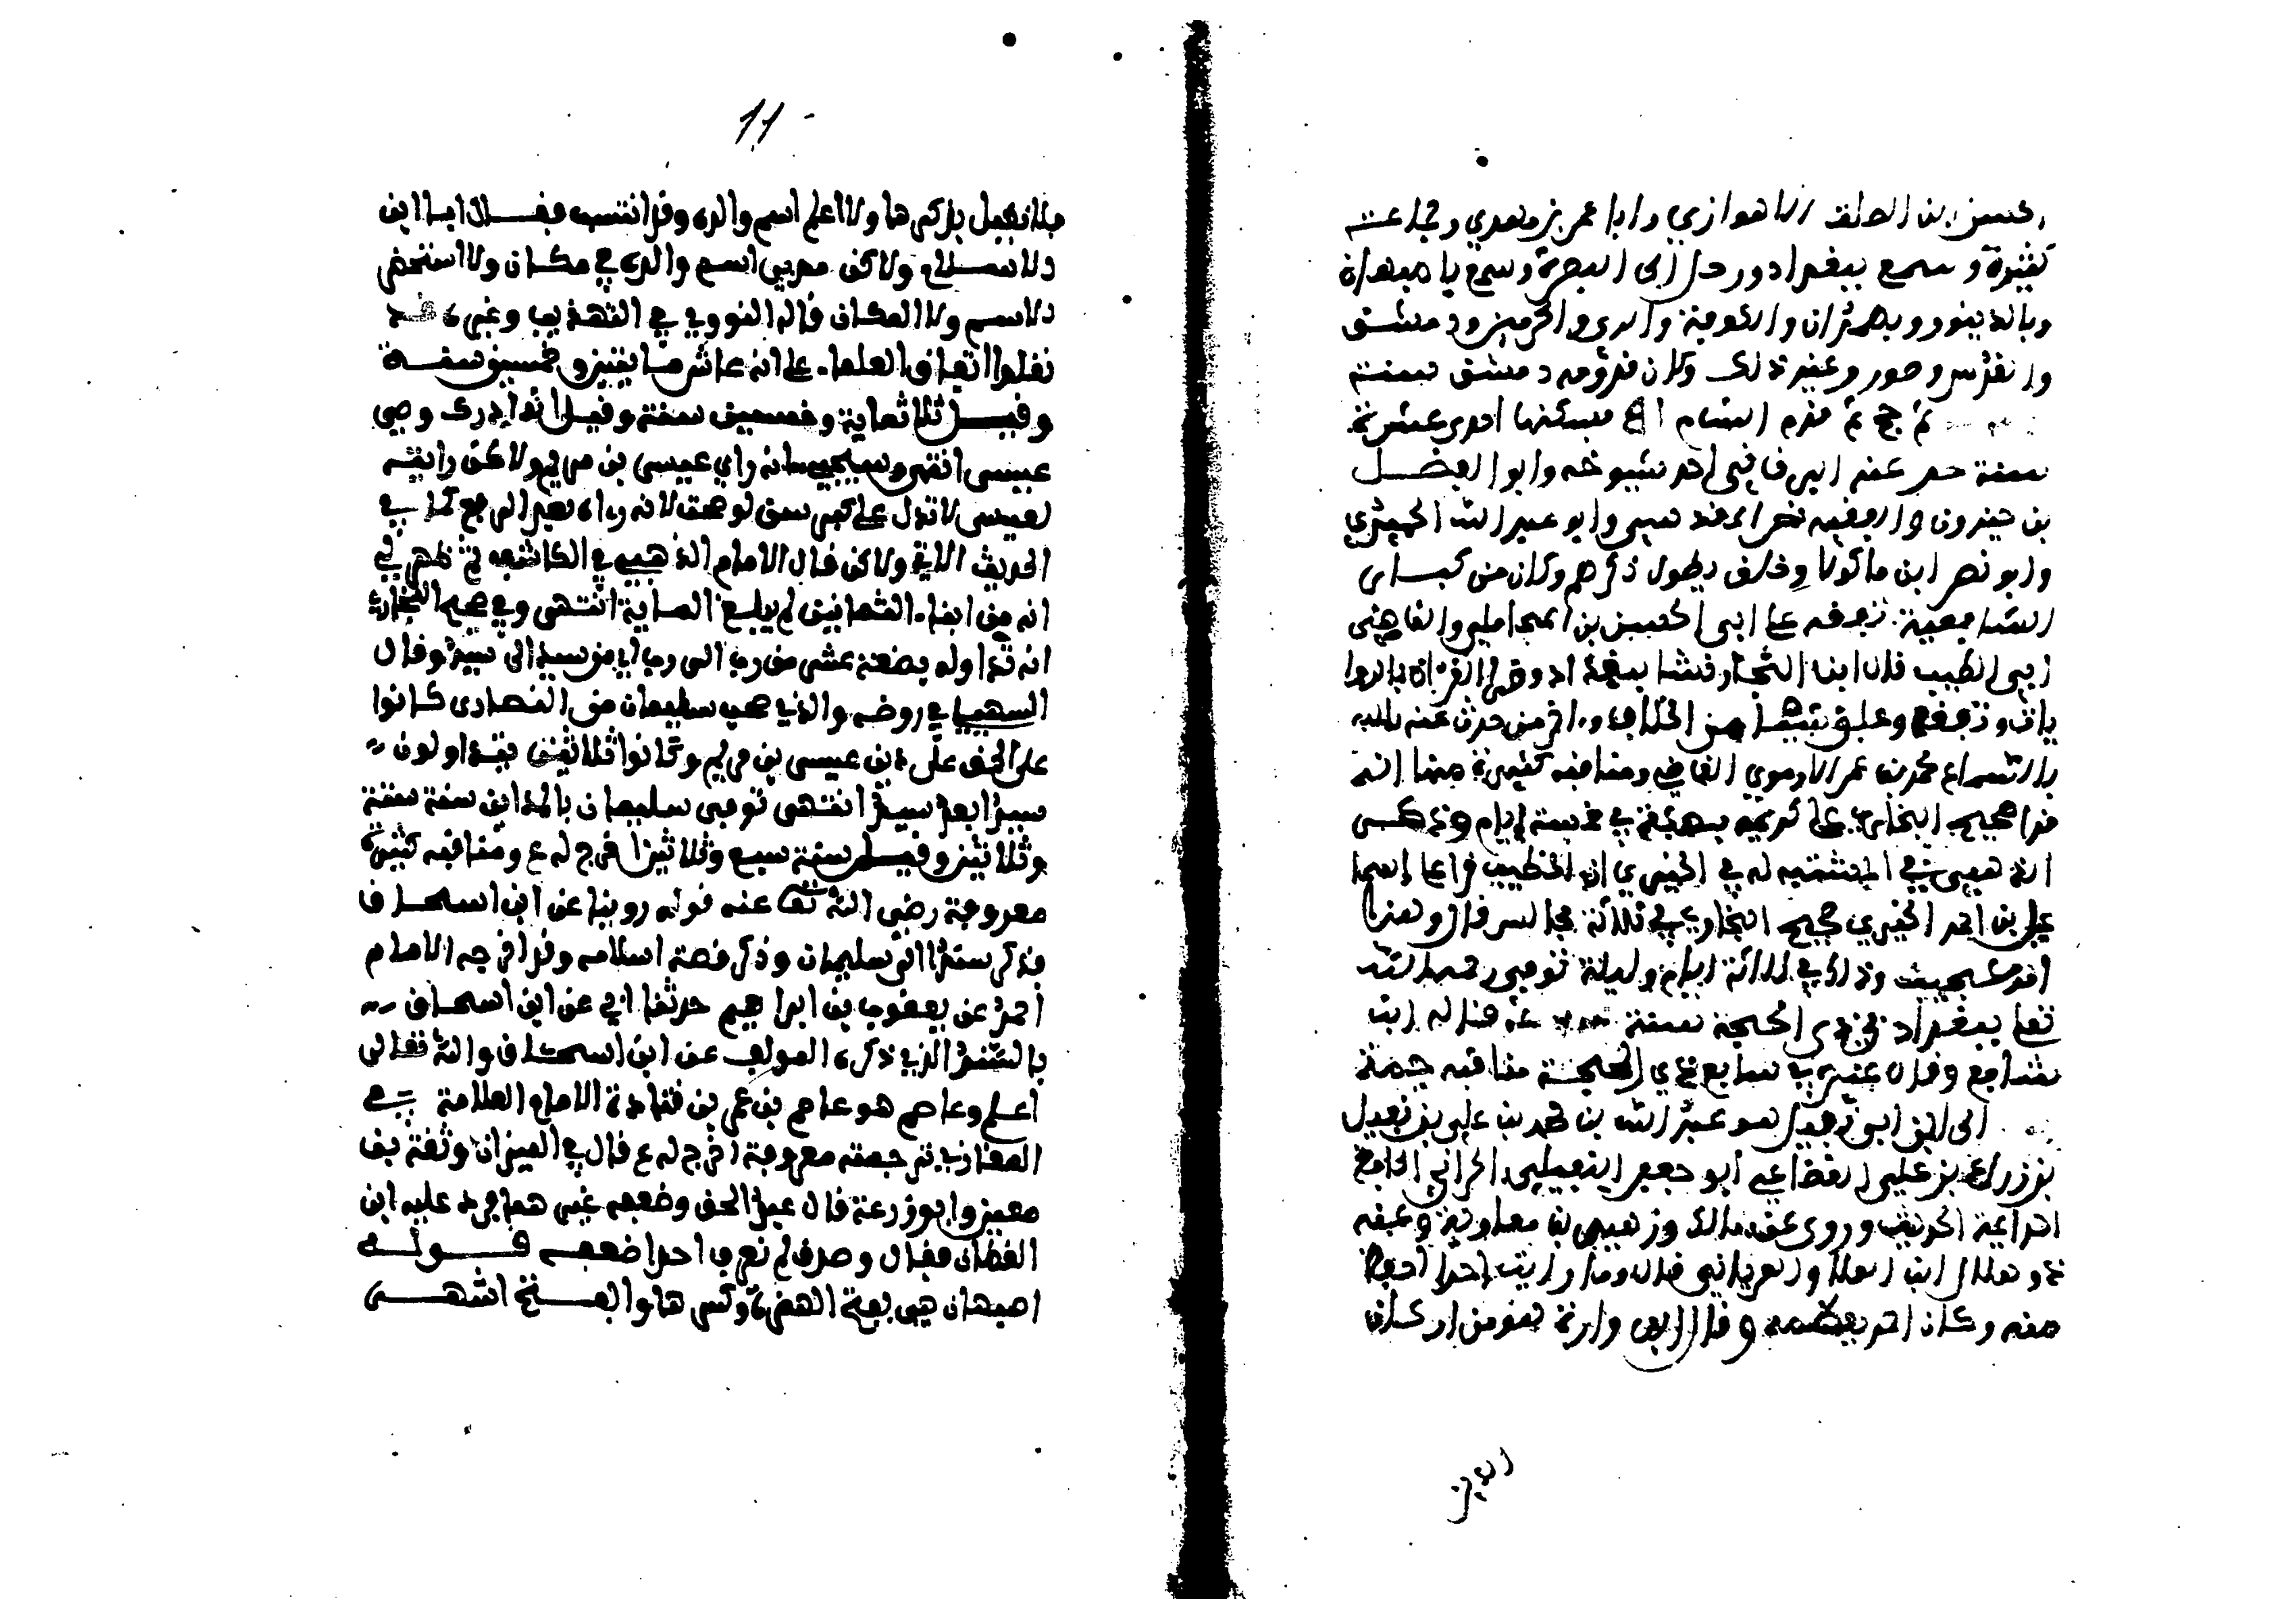 الحسن بن الصلت الاهوازي وابا عمر بن مهدي وجماعة
كثيرة وسمع ببغداد ورحل الى البصرة وسمع باصبهان
وبالدينور وبهمذان والكوفة والري والحرمين ودمشق
والقدس وصور وغير ذلك وكان قدومه دمشق سنة
ثم حج ثم قدم الشام فسكنها احدى عشرة
سنة عنه البرقاني احد شيوخه وابو الفضل
بن خيرون والفقيه نصر المقدسي وابو عبد الله الحميدي
وابو نصر ابن ماكولا وخلق يطول ذكرهم وكان من كبار
الشافعية تفقه على ابي الحسن بن المحاملي والقاضي
ابي الطيب قال ابن النجار نشا ببغداد وقرا القرءان بالروا
يات وتفقه وعلق شيئا من الخلاف واخر من حدث عنه
بالسماع محمد بن عمر الارموي القاضي ومناقبه كثيرة منها انه
قرا صحيح البخاري على كريمة بمكة في خمسة ايام وذكر
الذهبي في المشتبه له في الحيري ان الخطيب قرا على اسما
عيل بن احمد الحيري صحيح البخاري في ثلاثة مجالس قال وهذا
امر عجيب وذلك في ثلاثة ايام وليلة توفي رحمه الله
تعا ببغداد في ذي الحجة سنة قاله ابن
شافع وقال غيره في سابع ذي الحجة مناقبه جمة
الى ابن نفيل هو عبد الله بن محمد بن علي بن نفيل
بن زراع بن علي القضاعي ابو جعفر النفيلي الحراني الحافظ
احد ايمة الحديث وروى عن مالك وزهير بن معاوية وعنه
د وهلال ابن العلا والفريابي قال د ما رايت احدا احفظ
منه وكان احمد يعظمه وقال ابن وارة هو من اركان
الدين
11
فلا نطيل بذكرها ولا اعلم اسم والده وقد انتسب فقال انا ابن
الاسلام ولا كن مر بي اسم والده في مكان ولا استحضر
الاسم ولا المكان قاله النووي في التهذيب وغيره قد
نقلوا اتفاق العلماء على انه عاش مايتين وخمسين سنة
وقيل ثلاثماية وخمسين سنة وقيل انه ادرك وصي
عيسى انتهى وسيجيء انه راي عيسى بن مريم ولا كن رايته
لعيسى لا تدل على كبر سن لو صحت لانه رءاه بعد الرفع كما في
الحديث الاتي ولا كن قال الامام الذهبي في الكاشف ثم ظهر لي
انه من ابناء الثمانين لم يبلغ الماية انتهى وفي صحيح البخاري
انه تداوله بضعة عشر من رب الى رب اي من سيد الى سيد وقال
السهيلي في روضه والذي صحب سليمان من النصارى كانوا
على الحق على دين عيسى بن مريم وكانوا ثلاثين يتداولونه
سيدا بعد سيد انتهى توفي سليمان بالمداين سنة ستة
وثلاثين وقيل سنة سبع وثلاثين اخرج له ع ومناقبه كثيرة
معروفة رضي الله تعا عنه قوله روينا عن ابن اسحاق
فذكر سندا الى سليمان وذكر قصة اسلامه وقد اخرجه الامام
احمد عن يعقوب بن ابراهيم حدثنا ابي عن ابن اسحاق
بالسند الذي ذكره المولف عن ابن اسحاق والله تعالى
اعلم وعاصم هو عاصم بن عمر بن قتادة الامام العلامة في
المغازي ترجمته معروفة اخرج له ع قال في الميزان وثقه بن
معين وابو زرعة قال عبد الحق وضعفه غيرهما فرد عليه ابن
القطان فقال وصدق لم نعرف احدا ضعفه قوله
اصبهان هي بفتح الهمزة وكسرها والفتح اشهر